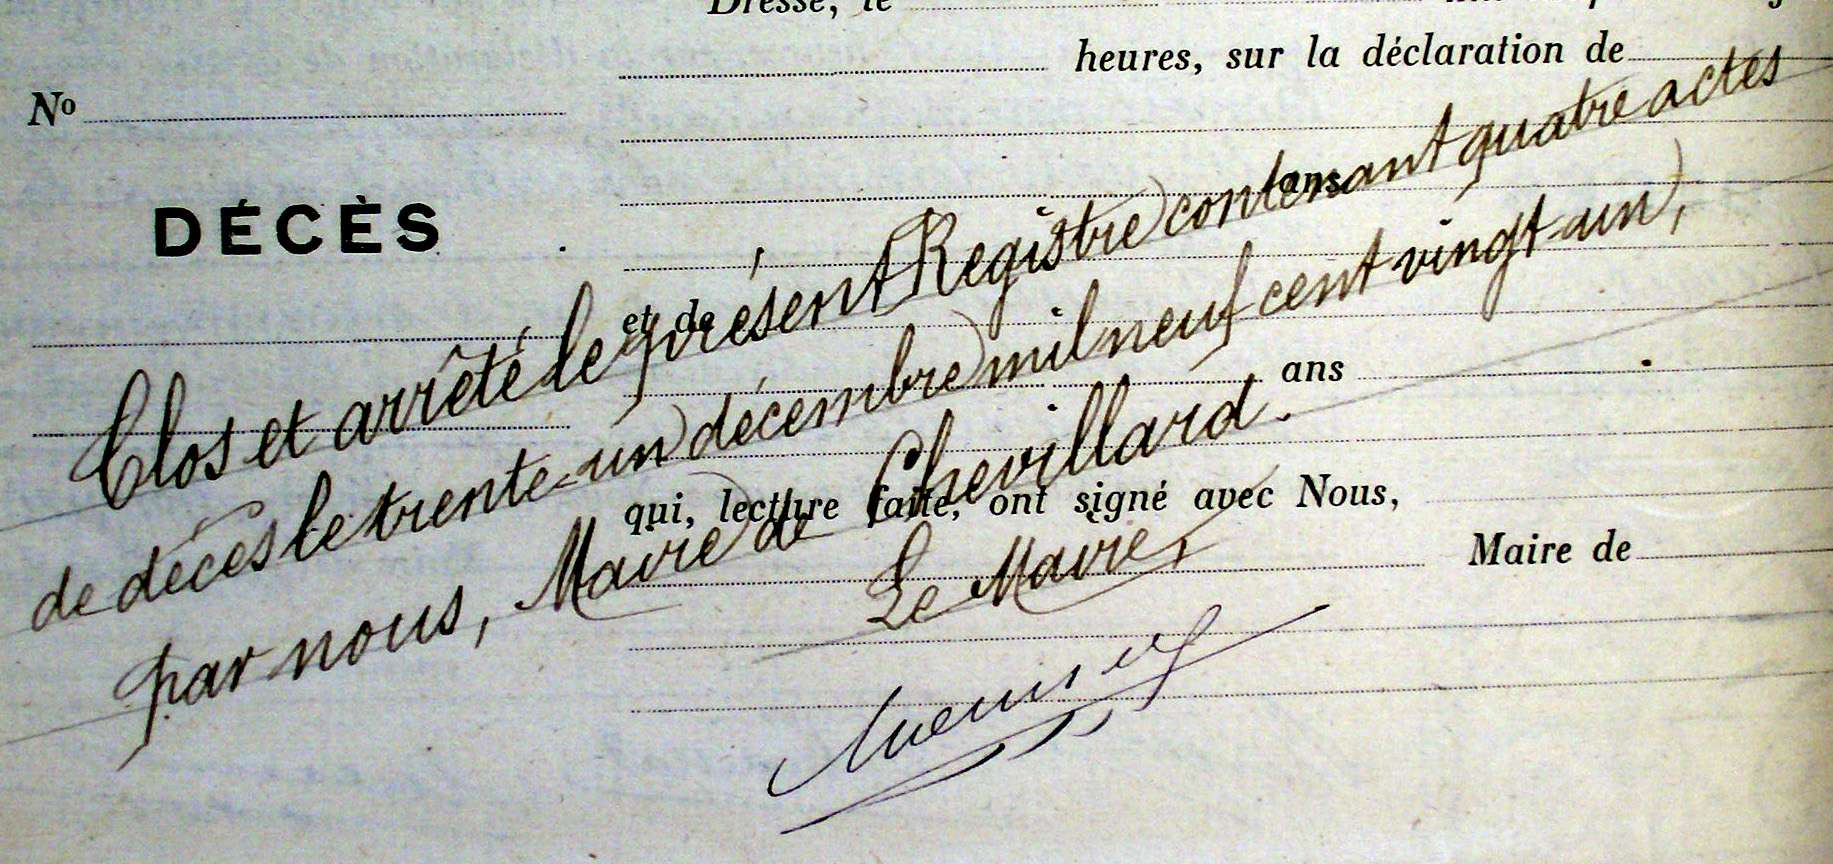 Dressé, le
heures, sur la déclaration de
No
ans
DÉCÈS
et de
ans
qui, lecture faite, ont signé avec Nous,
Maire de
Clos et arrêté le présent Registre contenant quatre actes
de décès le trente-un décembre mil neuf cent vingt-un,
par nous, Maire de Chevillard.
Le Maire,